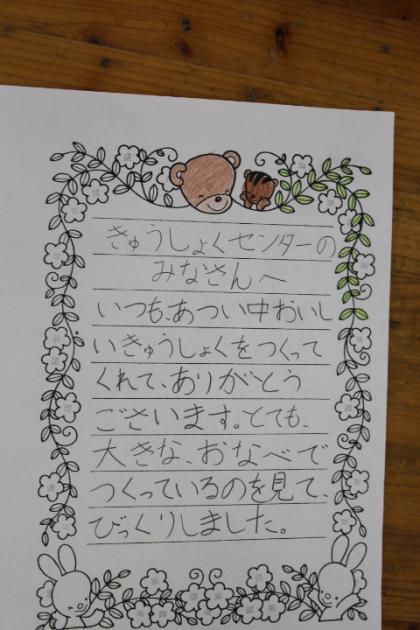 きゅうしょくセンターの
みなさんへ
いつも、あつい中おいし
いきゅうしょくをつくって
くれて、ありがとう
ございます。とても、
大きな、おなべで
つくっているのを見て、
びっくりしました。